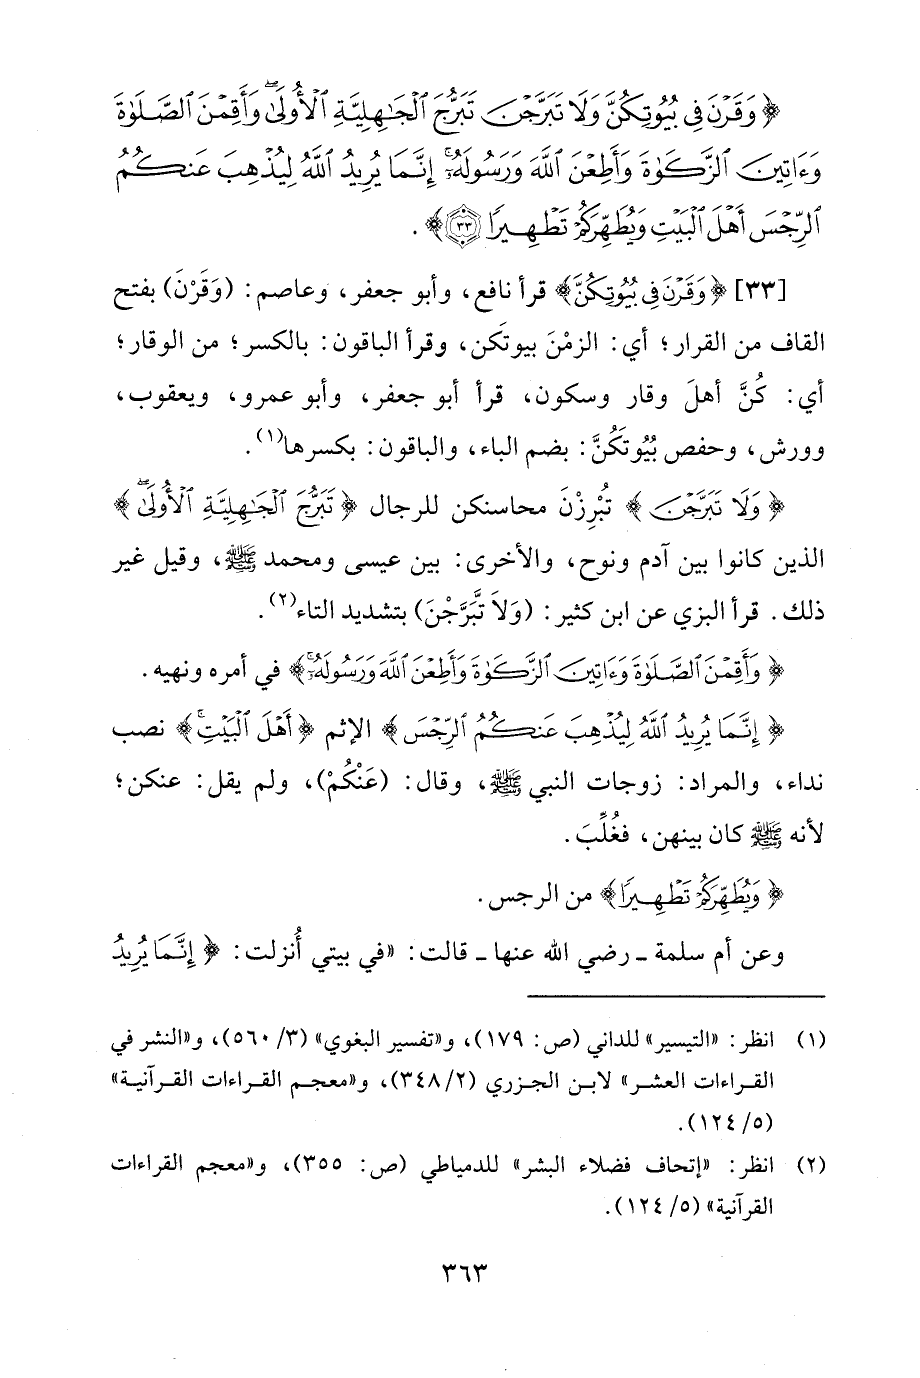 ﴿وَقَرْنَ فِي بُيُوتِكُنَّ وَلَا تَبَرَّجْنَ تَبَرُّجَ ٱلْجَٰهِلِيَّةِ ٱلْأُولَىٰۖ وَأَقِمْنَ ٱلصَّلَوٰةَ
وَءَاتِينَ ٱلزَّكَوٰةَ وَأَطِعْنَ ٱللَّهَ وَرَسُولَهُۥٓۚ إِنَّمَا يُرِيدُ ٱللَّهُ لِيُذْهِبَ عَنكُمُ
ٱلرِّجْسَ أَهْلَ ٱلْبَيْتِ وَيُطَهِّرَكُمْ تَطْهِيرًا ٣٣﴾.
[٣٣] ﴿وَقَرْنَ فِي بُيُوتِكُنَّ﴾ قرأ نافع، وأبو جعفر، وعاصم: (وَقَرْنَ) بفتح
القاف من القرار؛ أي: الزمْنَ بيوتَكن، وقرأ الباقون: بالكسر؛ من الوقار؛
أي: كُنَّ أهلَ وقار وسكون، قرأ أبو جعفر، وأبو عمرو، ويعقوب،
وورش، وحفص بُيُوتَكُنَّ: بضم الباء، والباقون: بكسرها(١).
﴿وَلَا تَبَرَّجْنَ﴾ تُبْرِزْنَ محاسنكن للرجال ﴿تَبَرُّجَ ٱلْجَٰهِلِيَّةِ ٱلْأُولَىٰۖ﴾
الذين كانوا بين آدم ونوح، والأخرى: بين عيسى ومحمد ﷺ، وقيل غير
ذلك. قرأ البزي عن ابن كثير: (وَلاَ تَّبَرَّجْنَ) بتشديد التاء(٢).
﴿وَأَقِمْنَ ٱلصَّلَوٰةَ وَءَاتِينَ ٱلزَّكَوٰةَ وَأَطِعْنَ ٱللَّهَ وَرَسُولَهُۥٓۚ﴾ في أمره ونهيه.
﴿إِنَّمَا يُرِيدُ ٱللَّهُ لِيُذْهِبَ عَنكُمُ ٱلرِّجْسَ﴾ الإثم ﴿أَهْلَ ٱلْبَيْتِۚ﴾ نصب
نداء، والمراد: زوجات النبي ﷺ، وقال: (عَنْكُمْ)، ولم يقل: عنكن؛
لأنه ﷺ كان بينهن، فغُلِّبَ.
﴿وَيُطَهِّرَكُمْ تَطْهِيرًا﴾ من الرجس.
وعن أم سلمة ـ رضي الله عنها ـ قالت: «في بيتي أُنزلت: ﴿إِنَّمَا يُرِيدُ
(١) انظر: «التيسير» للداني (ص: ١٧٩)، و«تفسير البغوي» (٣/ ٥٦٠)، و«النشر في
القراءات العشر» لابن الجزري (٢/ ٣٤٨)، و«معجم القراءات القرآنية»
(٥/ ١٢٤).
(٢) انظر: «إتحاف فضلاء البشر» للدمياطي (ص: ٣٥٥)، و«معجم القراءات
القرآنية» (٥/ ١٢٤).
٣٦٣